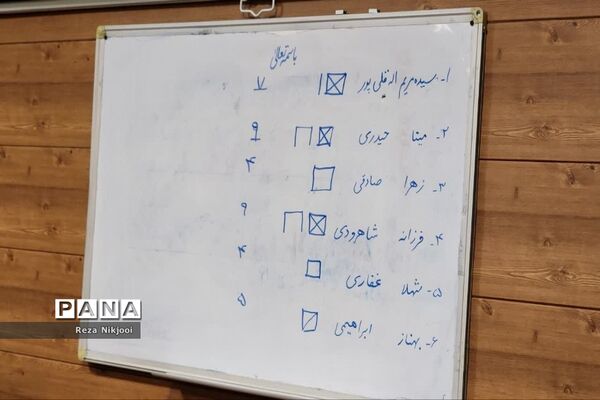 باسمه تعالی
۱- سیده مریم اله قلی پور ۷
۲- مینا حیدری ۹
۳- زهرا صادقی ۴
۴- فرزانه شاهرودی ۹
۵- شهلا غفاری ۴
۶- بهناز ابراهیمی ۵
PANA
Reza Nikjooi